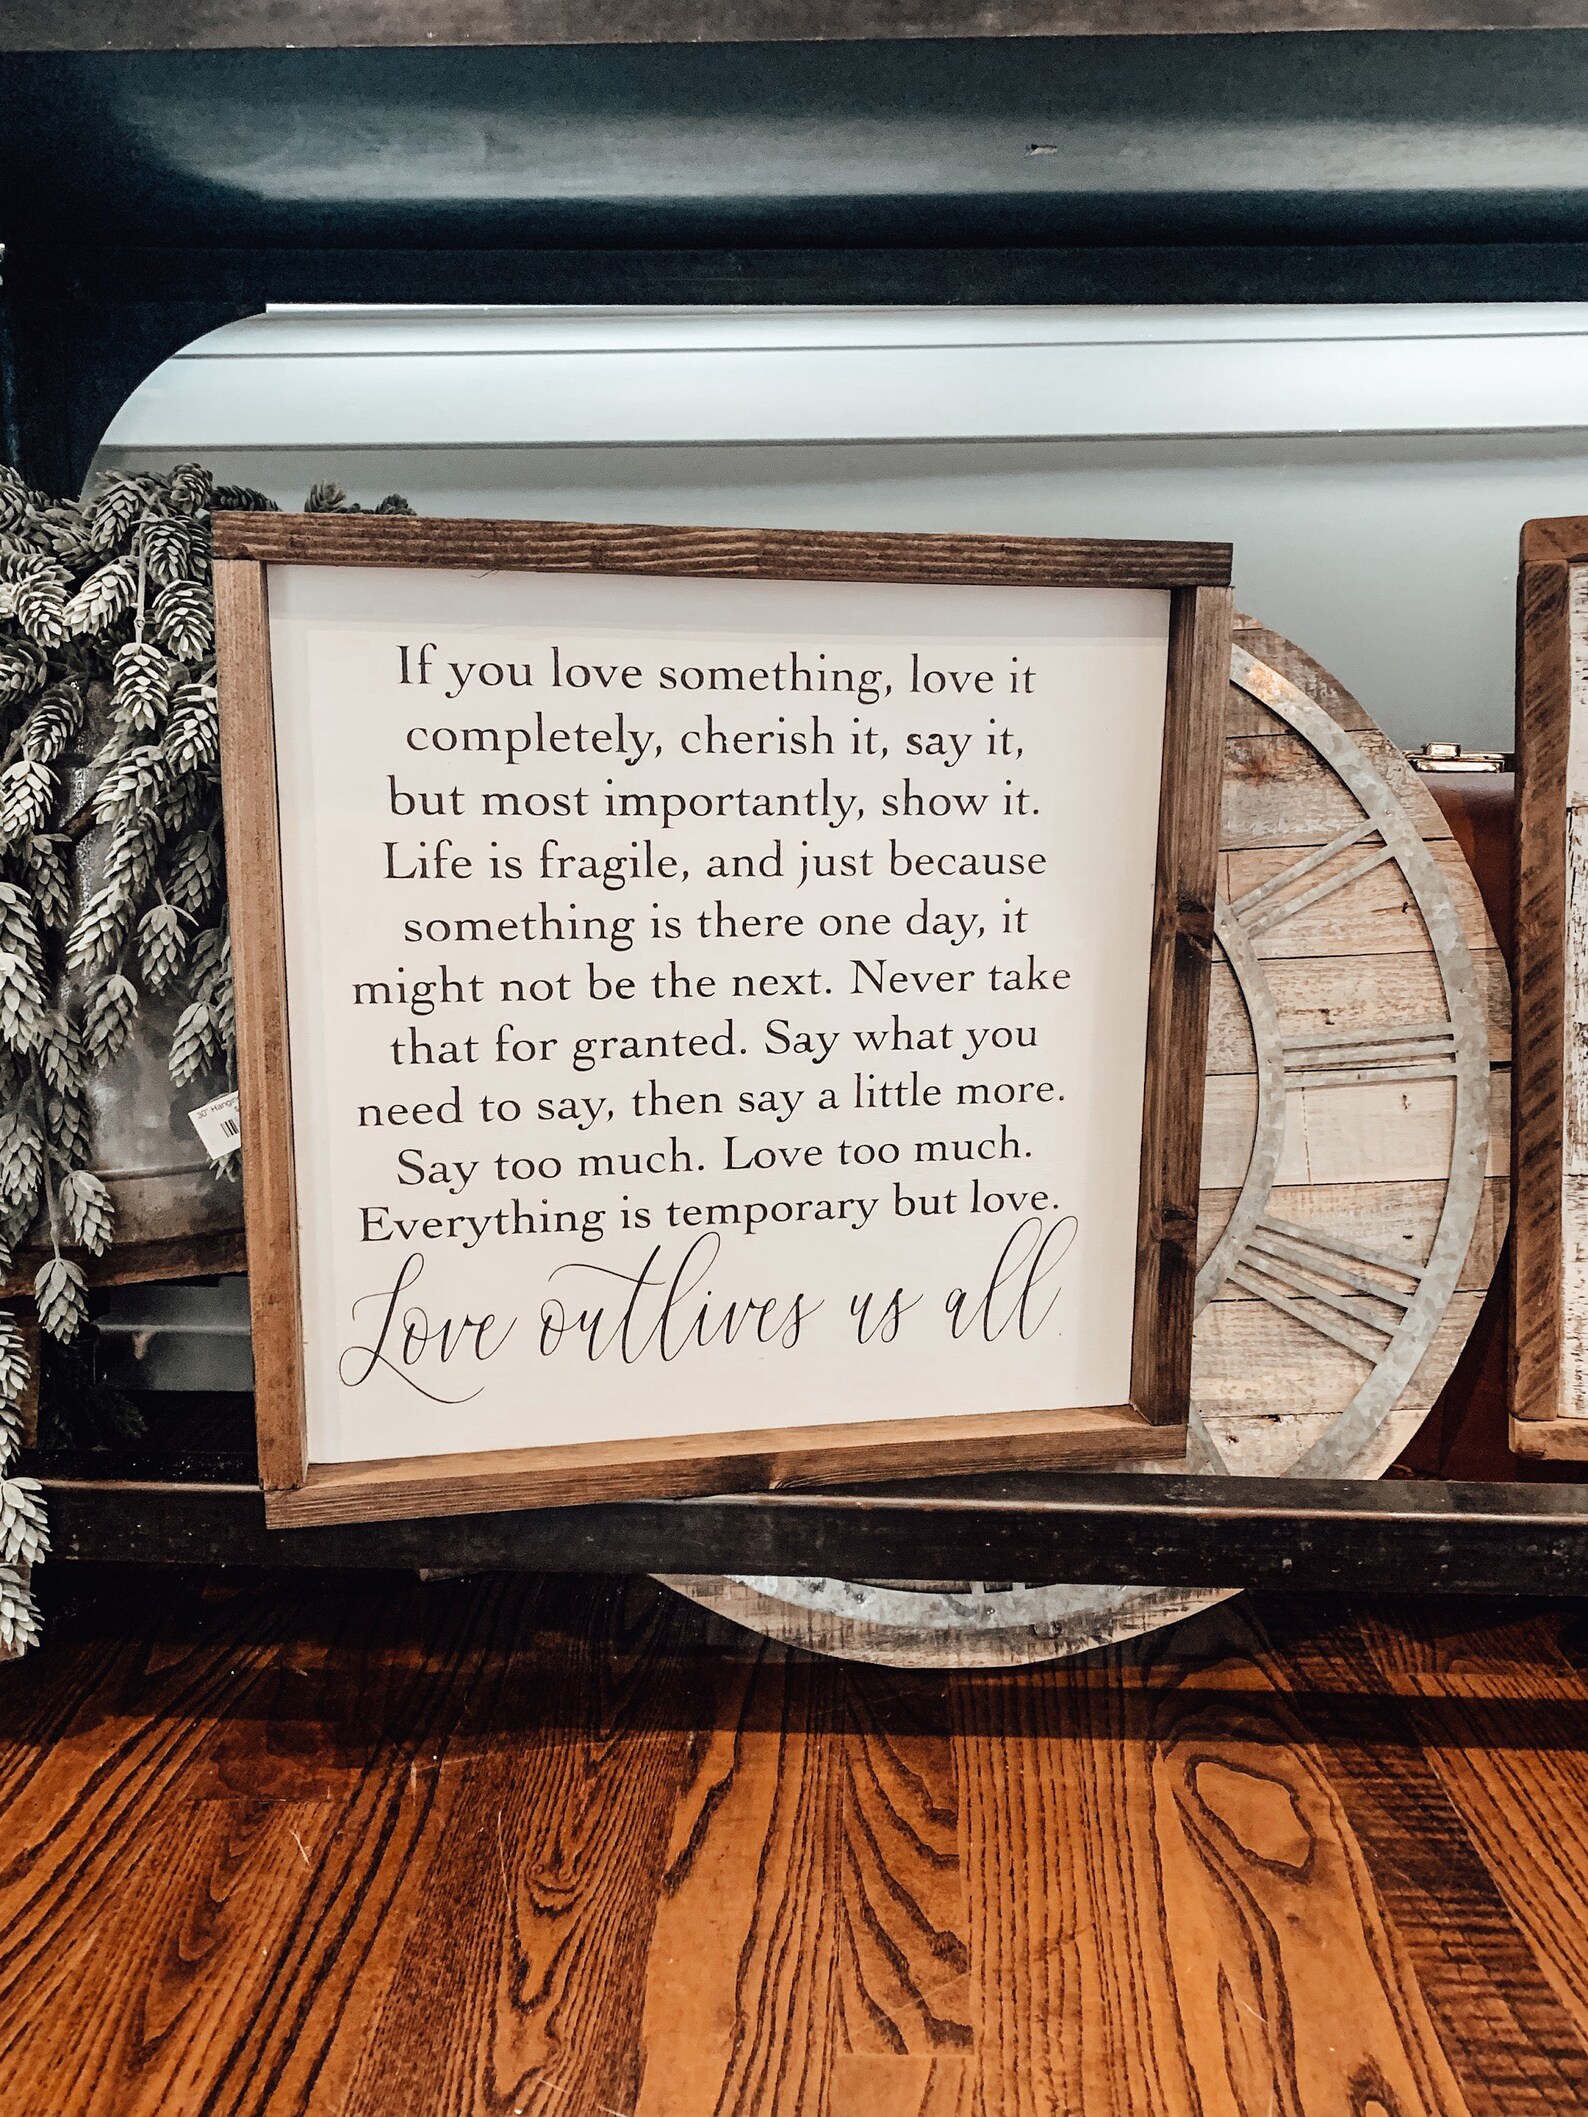 If you love something, love it
completely, cherish it, say it,
but most importantly, show it.
Life is fragile, and just because
something is there one day, it
might not be the next. Never take
that for granted. Say what you
need to say, then say a little more.
Say too much. Love too much.
Everything is temporary but love.
Love outlives us all
30" Hanging